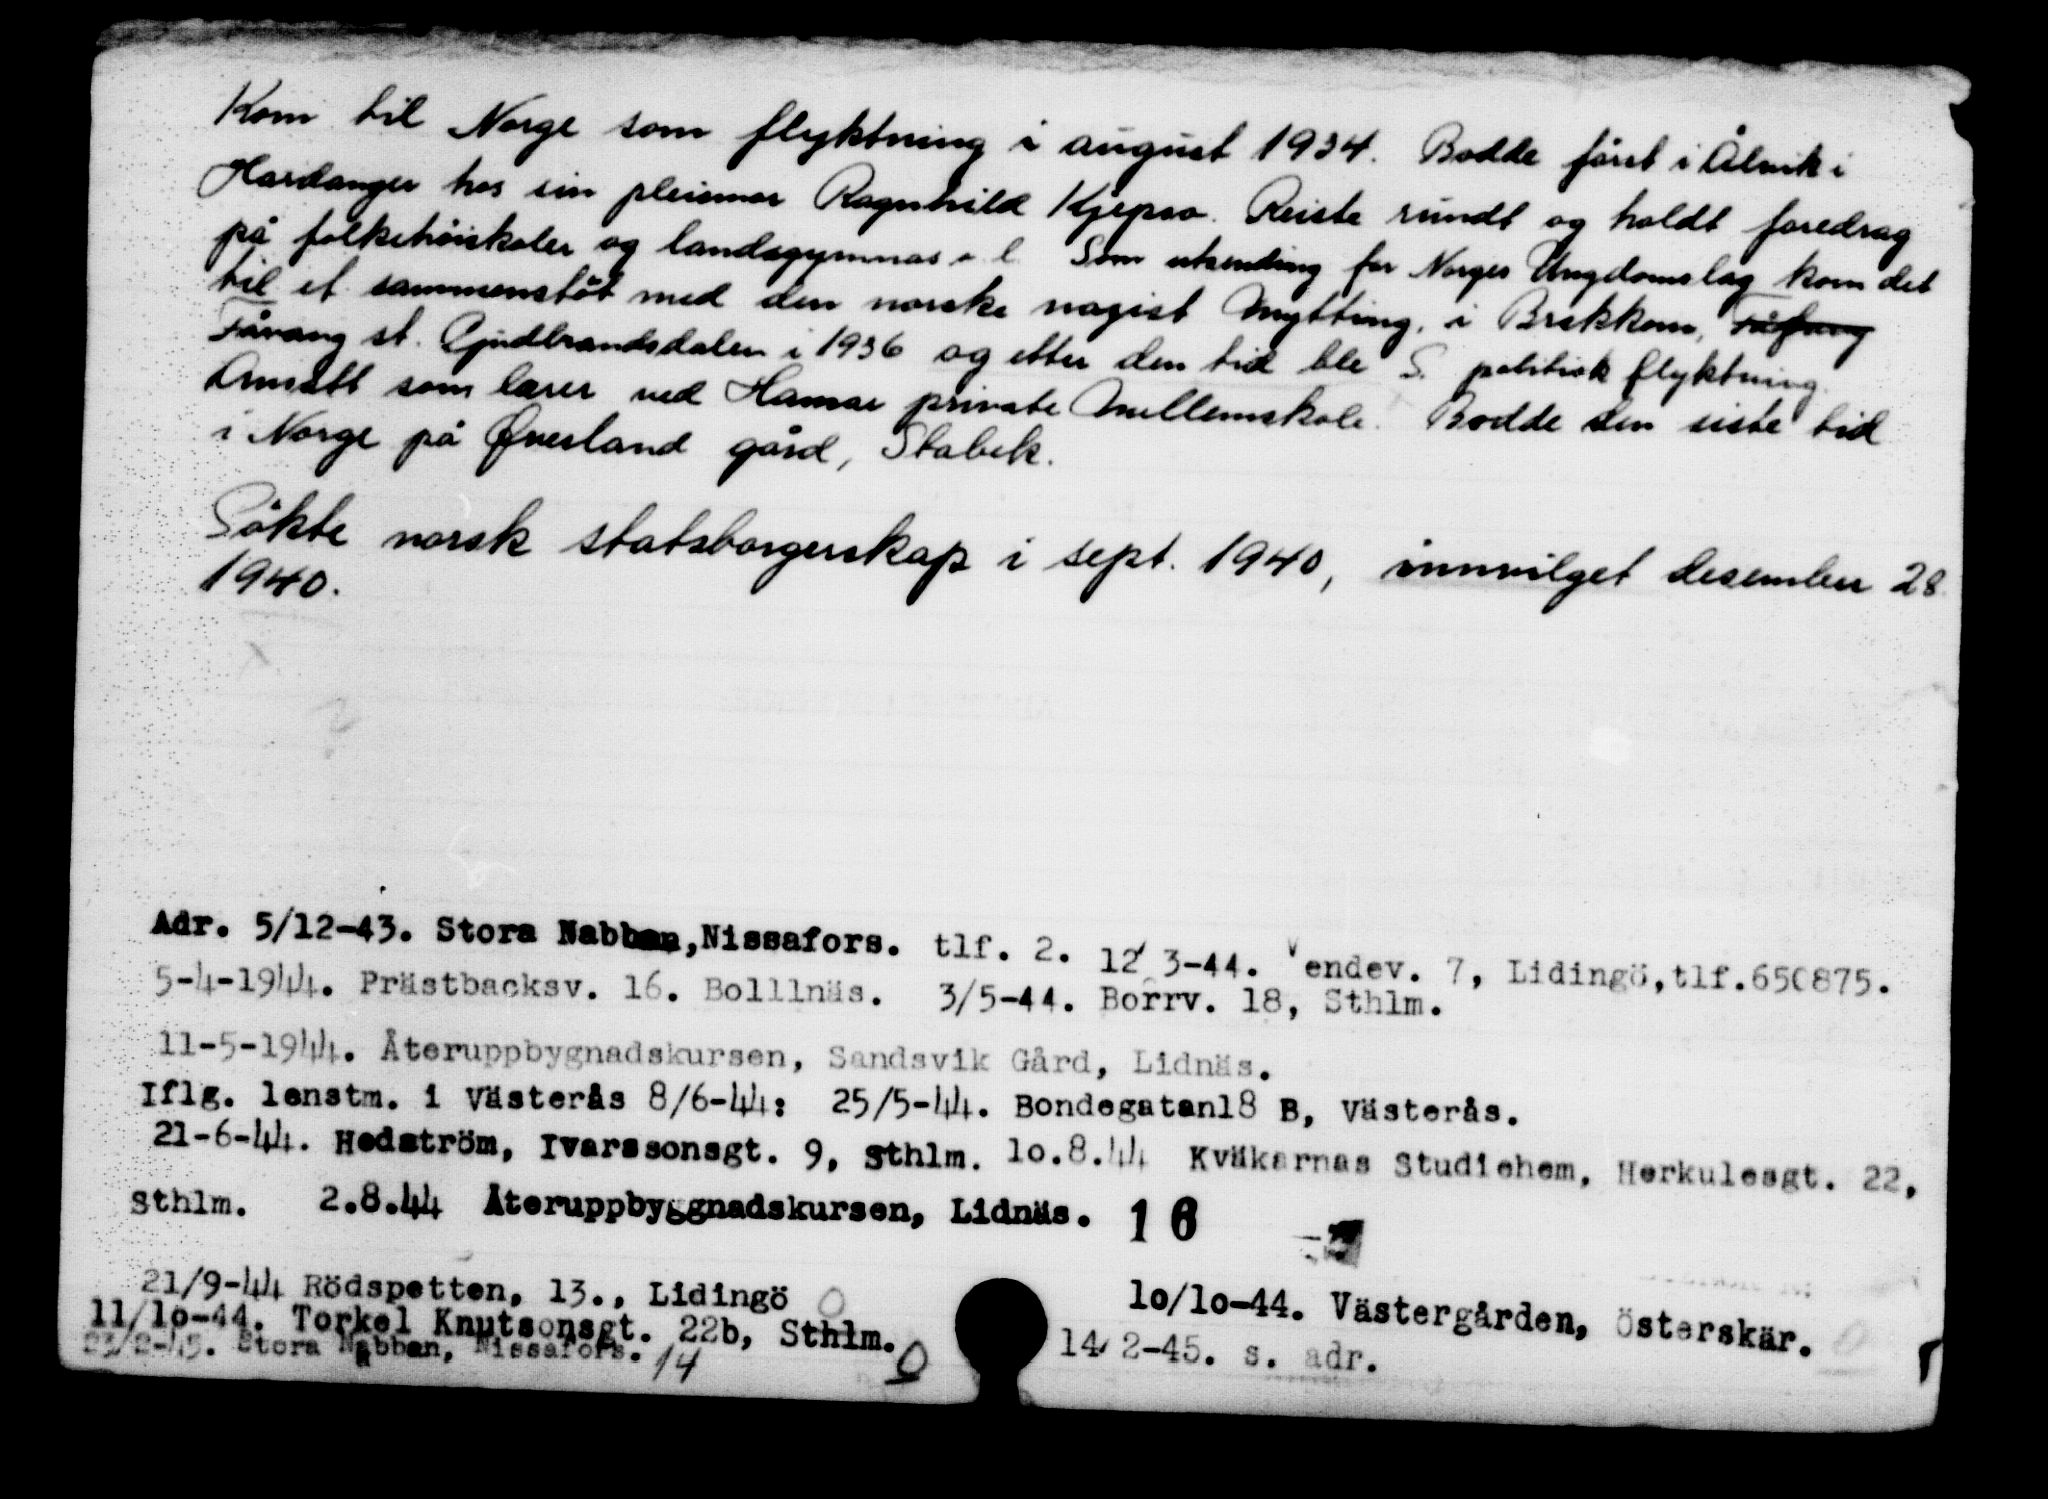 Kom til Norge som flyktning i august 1934. Bodde först i Ålvik i
Hardanger hos sin pleiemor Ragnhild Kjepso. Reiste rundt og holdt foredrag
på folkehöiskoler og landsgymnas o. l. Som utsending for Norges Ungdomslag kom det
til et sammenstöt med den norske nazist Mytting, i Brekkom,
Fåvang st. Gudbrandsdalen i 1936 og etter den tid ble S. politisk flyktning.
Ansatt som lærer ved Hamar private Mellemskole. Bodde den siste tid
i Norge på Øverland gård, Stabek.
Sökte norsk statsborgerskap i sept. 1940, innvilget desember 28
1940.
Adr. 5/12-43. Stora Nabban, Nissafors. tlf. 2. 12/3-44. Vendev. 7, Lidingö, tlf.650875.
5-4-1944. Prästbacksv. 16. Bolllnäs. 3/5-44. Borrv. 18, Sthlm.
11-5-1944. Återuppbygnadskursen, Sandsvik Gård, Lidnäs.
Iflg. lenstm. i Västerås 8/6-44: 25/5-44. Bondegatan18 B, Västerås.
21-6-44. Hedström, Ivarssonsgt. 9, Sthlm. 10.8.44 Kväkarnas Studiehem, Herkulesgt. 22,
Sthlm. 2.8.44 Återuppbyggnadskursen, Lidnäs. 16
21/9-44 Rödspetten, 13., Lidingö 0 10/10-44. Västergården, Österskär. 0
11/10-44. Torkel Knutsonsgt. 22b, Sthlm. 0 14/2-45. s. adr.
23/2-45. Stora Nabban, Nissafors. 14